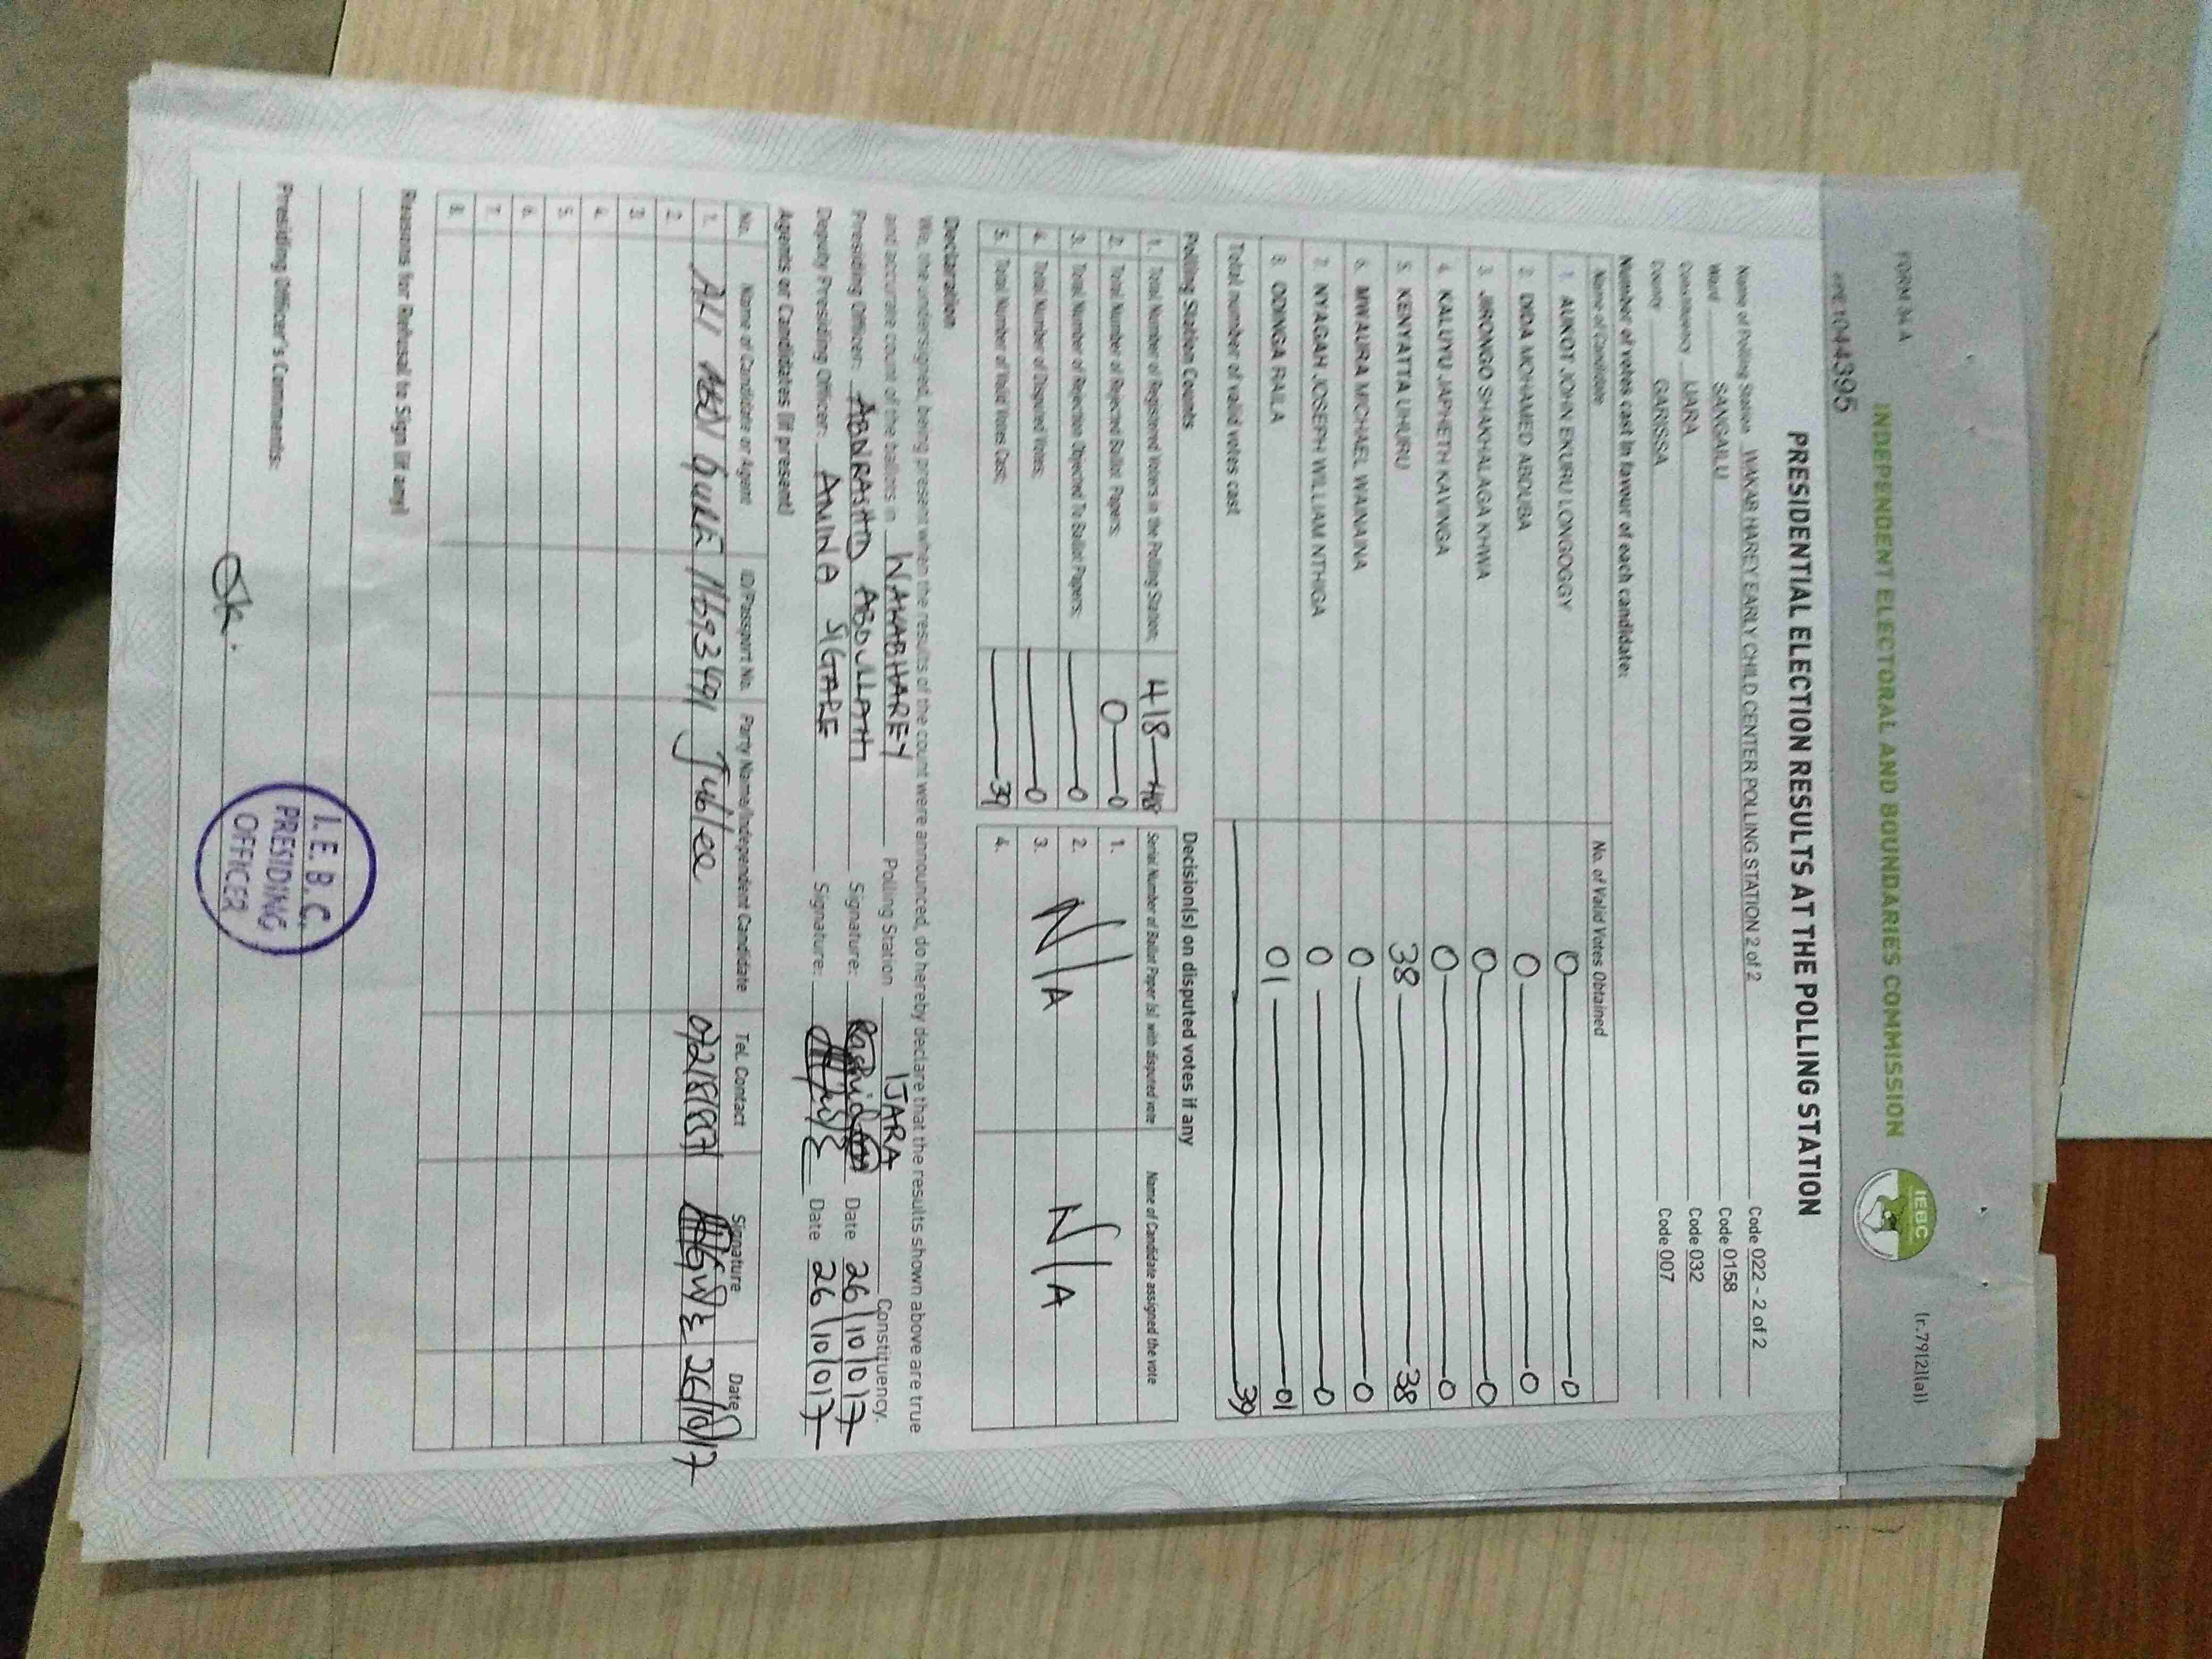 FORM 34 A
(r.79(2)(a))
INDEPENDENT ELECTORAL AND BOUNDARIES COMMISSION
IEBC
PRESIDENTIAL ELECTION RESULTS AT THE POLLING STATION
Name of Polling Station WAKAB HAREY EARLY CHILD CENTER POLLING STATION 2 of 2 Code 022 - 2 of 2
Ward SANGAILU Code 0158
Constituency IJARA Code 032
County GARISSA Code 007
Number of votes cast in favour of each candidate:
Name of Candidate No. of Valid Votes Obtained
1. AUKOT JOHN EKURU LONGOGGY 0 0
2. DIDA MOHAMED ABDUBA 0 0
3. JIRONGO SHAKHALAGA KHWA 0 0
4. KALUYU JAPHETH KAVINGA 0 0
5. KENYATTA UHURU 38 38
6. MWAURA MICHAEL WAINAINA 0 0
7. NYAGAH JOSEPH WILLIAM NTHIGA 0 0
8. ODINGA RAILA 01 01
Total number of valid votes cast 39
Polling Station Counts
1. Total Number of Registered Voters in the Polling Station: 418 418
2. Total Number of Rejected Ballot Papers: 0 0
3. Total Number of Rejection Objected To Ballot Papers: 0
4. Total Number of Disputed Votes: 0
5. Total Number of Valid Votes Cast: 39
Decision(s) on disputed votes if any
Serial Number of Ballot Paper (s) with disputed vote Name of Candidate assigned the vote
1.
2. N/A N/A
3.
4.
Declaration
We, the undersigned, being present when the results of the count were announced, do hereby declare that the results shown above are true
and accurate count of the ballots in WAKABHAREY Polling Station IJARA Constituency.
Presiding Officer: ABDIRASHID ABDULLAHI Signature: Date 26/10/017
Deputy Presiding Officer: AMINA SIGALE Signature: Date 26/10/017
Agents or Candidates (if present)
No. Name of Candidate or Agent ID/Passport No. Party Name/Independent Candidate Tel. Contact Signature Date
1. ALI ABDI GURE 11693491 Jubilee 26/10/17
2.
3.
4.
5.
6.
7.
8.
Reasons for Refusal to Sign (if any)
Presiding Officer's Comments:
Ok.
I. E. B. C.
PRESIDING
OFFICER